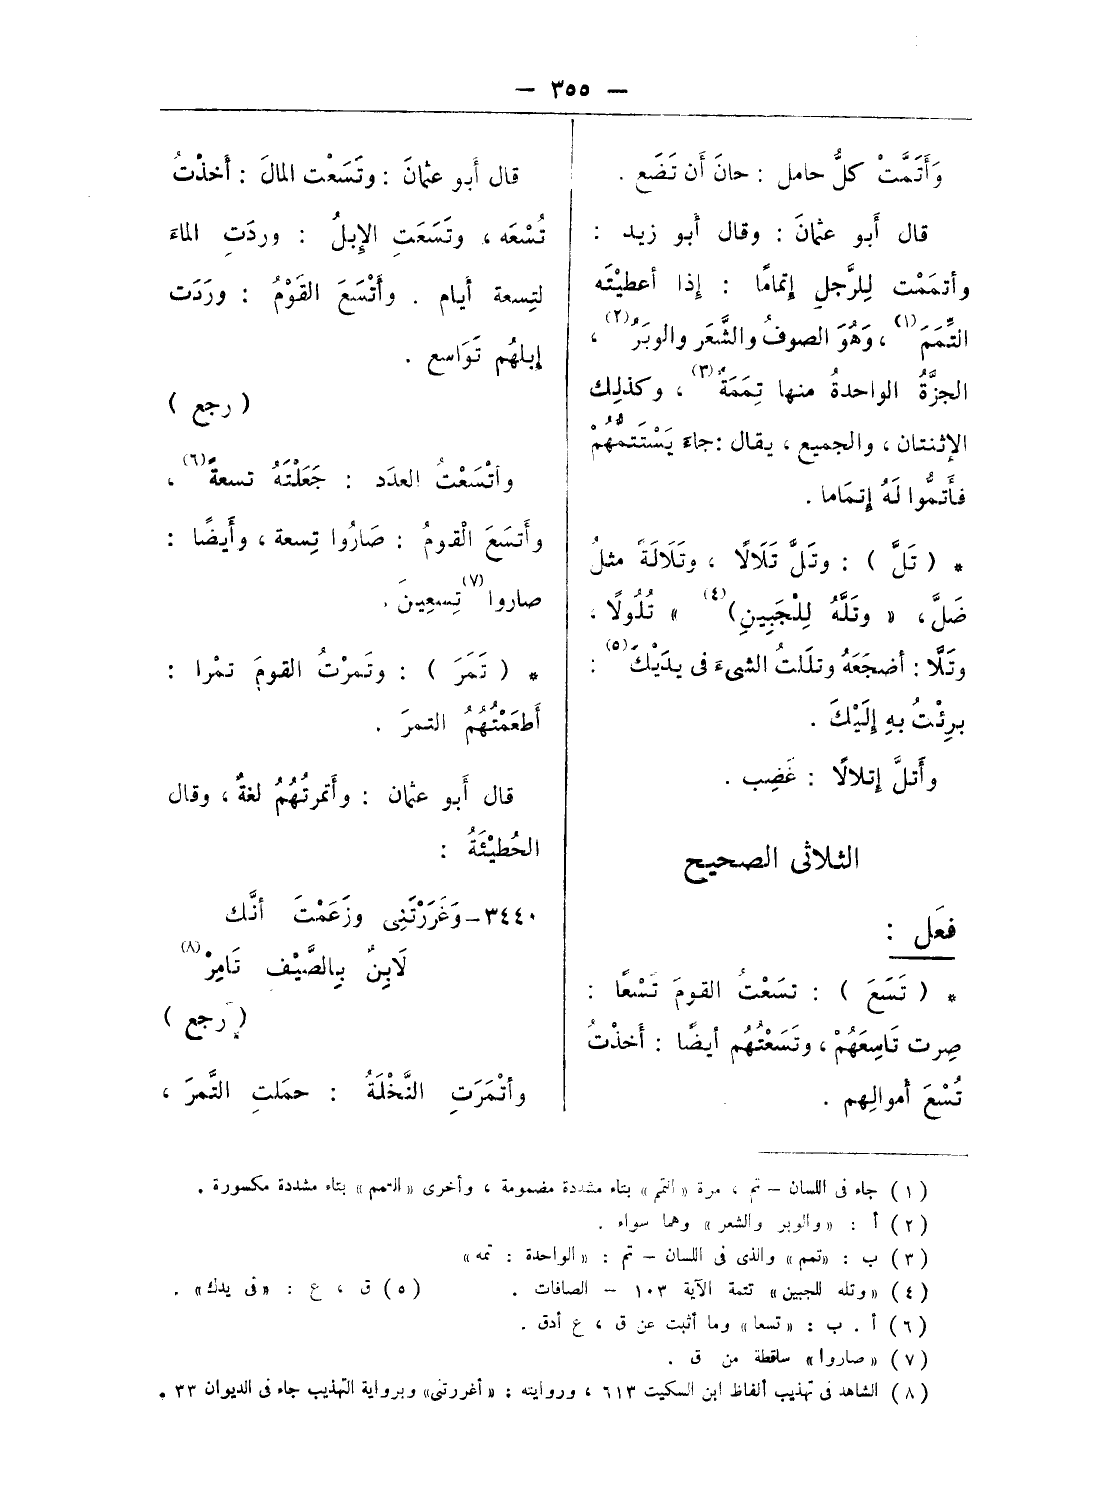 — ٣٥٥ —
وَأَتَمَّتْ كلُّ حامل : حانَ أن تَضَع .
قال أَبو عثمانَ : وقال أبو زيد :
وأتمَمْت لِلرَّجلِ إتمامًا : إذا أعطيْتَه
التِّمَمَ (١) ، وَهُوَ الصوفُ والشَّعَر والوبَرُ (٢) ،
الجزَّةُ الواحدةُ منها تِمَمَةٌ (٣) ، وكذلِك
الإثنتان ، والجميع ، يقال : جاءَ يَسْتَتمُّهُمْ
فأَتمُّوا لَهُ إتمَاما .
* ( تَلَّ ) : وتَلَّ تَلَالًا ، وتَلَالَةً مثلُ
ضَلَّ ، « وتَلَّهُ لِلْجَبِينِ (٤) » تُلُولًا ،
وتَلًّا : أضجَعَهُ وتلَلتُ الشىءَ فى يدَيْكَ (٥) :
برِئْتُ بهِ إلَيْكَ .
وأَتلَّ إتلالًا : غَضِب .
الثلاثى الصحيح
فعَل :
* ( تَسَعَ ) : تسَعْتُ القومَ تَسْعًا :
صِرت تَاسِعَهُمْ ، وتَسَعْتُهُم أيضًا : أخذْتُ
تُسْعَ أموالِهم .
قال أَبو عثمانَ : وتَسَعْت المالَ : أَخذْتُ
تُسْعَه ، وتَسَعَتِ الإبلُ : وردَتِ الماءَ
لتِسعة أيام . وأَتْسَعَ القَوْمُ : ورَدَت
إبلهُم تَوَاسع .
( رجع )
وأتْسَعْتُ العدَد : جَعَلْتَهُ تسعةً (٦) ،
وأتسَعَ الْقومُ : صَارُوا تِسعة ، وأَيضًا :
صاروا (٧) تِسعِينَ .
* ( تَمَرَ ) : وتَمرْتُ القومَ تمْرا :
أَطعَمْتُهُمُ التمرَ .
قال أَبو عثمان : وأَتمرتُهُمُ لغةٌ ، وقال
الحُطيْئَةُ :
٣٤٤٠ – وَغَرَرْتَنِى وزَعَمْتَ أنَّك
لَابِنٌ بِالصَّيْف تَامِرْ (٨)
( رجع )
وأتْمَرَتِ النَّخْلَةُ : حملَتِ التَّمرَ ،
(١) جاء فى اللسان – تم ، مرة « التمم » بتاء مشددة مضمومة ، وأخرى « التمم » بتاء مشددة مكسورة .
(٢) أ : « والوبر والشعر » وهما سواء .
(٣) ب : « تمم » والذى فى اللسان – تم : « الواحدة : تمه »
(٤) « وتله للجبين » تتمة الآية ١٠٣ – الصافات . (٥) ق ، ع : « فى يدك » .
(٦) أ . ب : « تسعا » وما أثبت عن ق ، ع أدق .
(٧) « صاروا » ساقطة من ق .
(٨) الشاهد فى تهذيب ألفاظ ابن السكيت ٦١٣ ، وروايته : « أغررتنى » وبرواية التهذيب جاء فى الديوان ٣٣ .